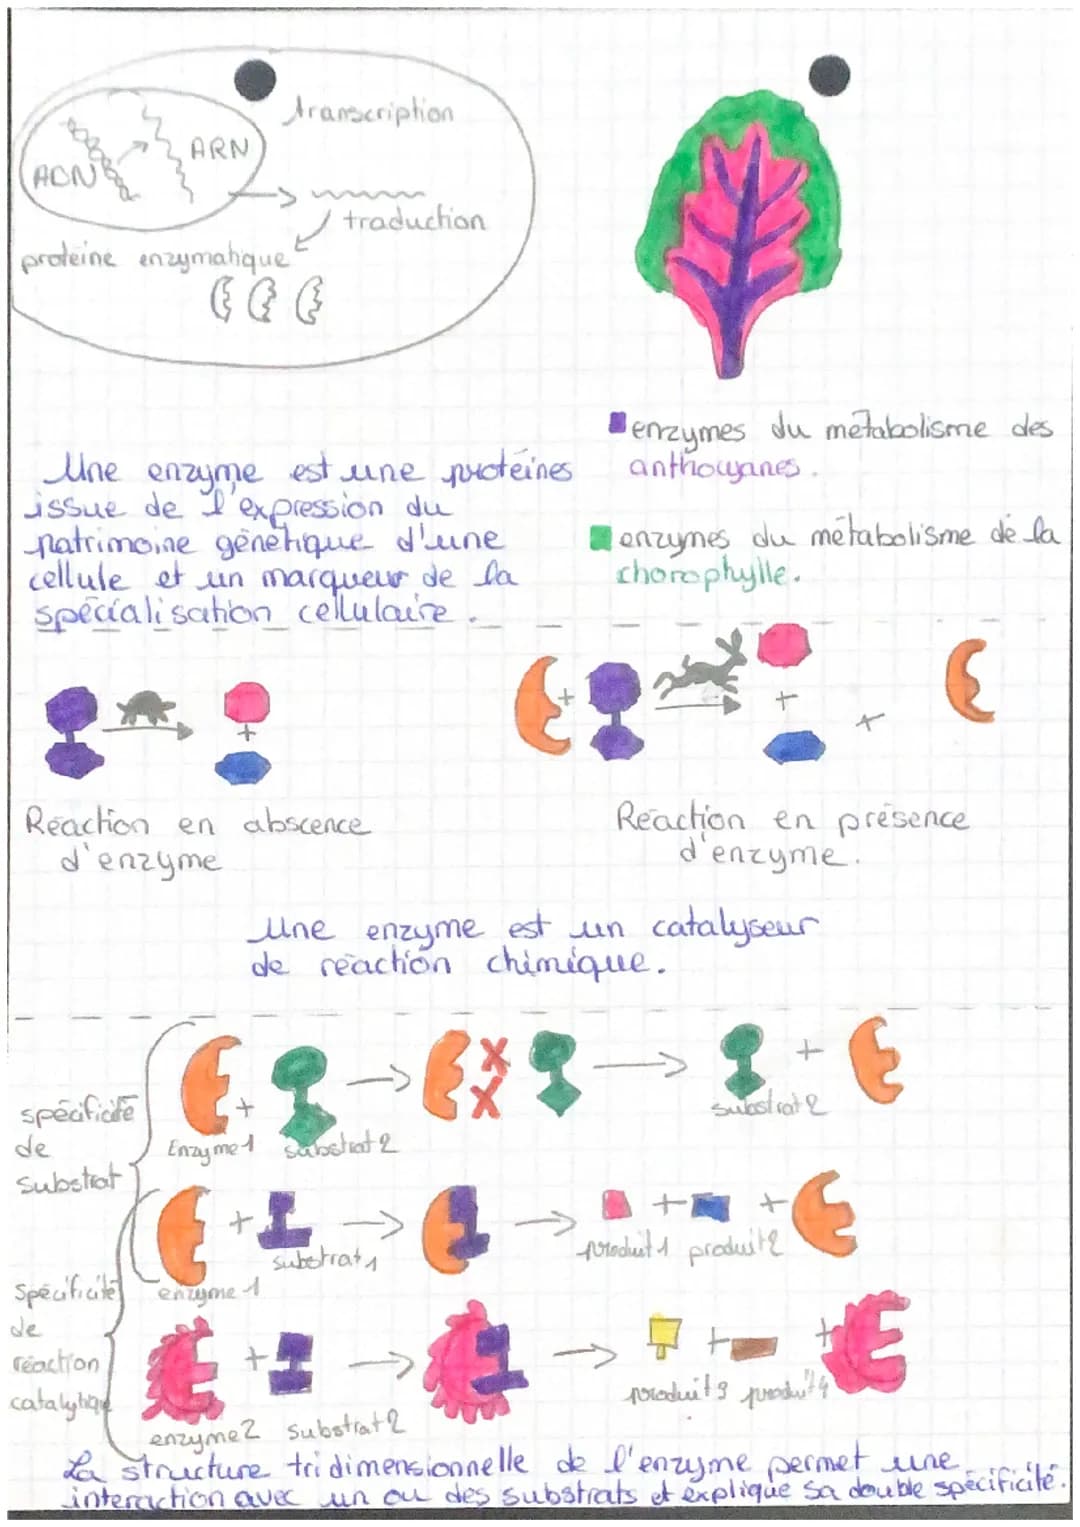 transcription
ADN
ARN
traduction
protéine enzymatique
enzymes du métabolisme des
anthouyanes.
Une enzyme est une protéines
issue de l'expression du
patrimoine génétique d'une
cellule et un marqueur de la
spécialisation cellulaire.
enzymes du métabolisme de la
chorophylle.
+
+
+
+
Réaction en abscence
d'enzyme
Réaction en présence
d'enzyme.
Une enzyme est un catalyseur
de réaction chimique.
spécificité
de
substrat
+
+
Enzyme 1 substrat 2
substrat 2
+ + +
substrat 1
produit 1 produit 2
enzyme 1
Spécificité
de
réaction
catalytique
+ + +
produit 3 produit 4
enzyme 2 substrat 2
La structure tridimensionnelle de l'enzyme permet une
interaction avec un ou des substrats et explique sa double spécificité.